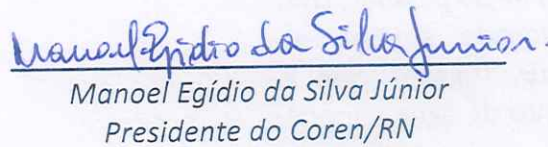 Manoel Egidio da Silva Junior.
Manoel Egídio da Silva Júnior
Presidente do Coren/RN